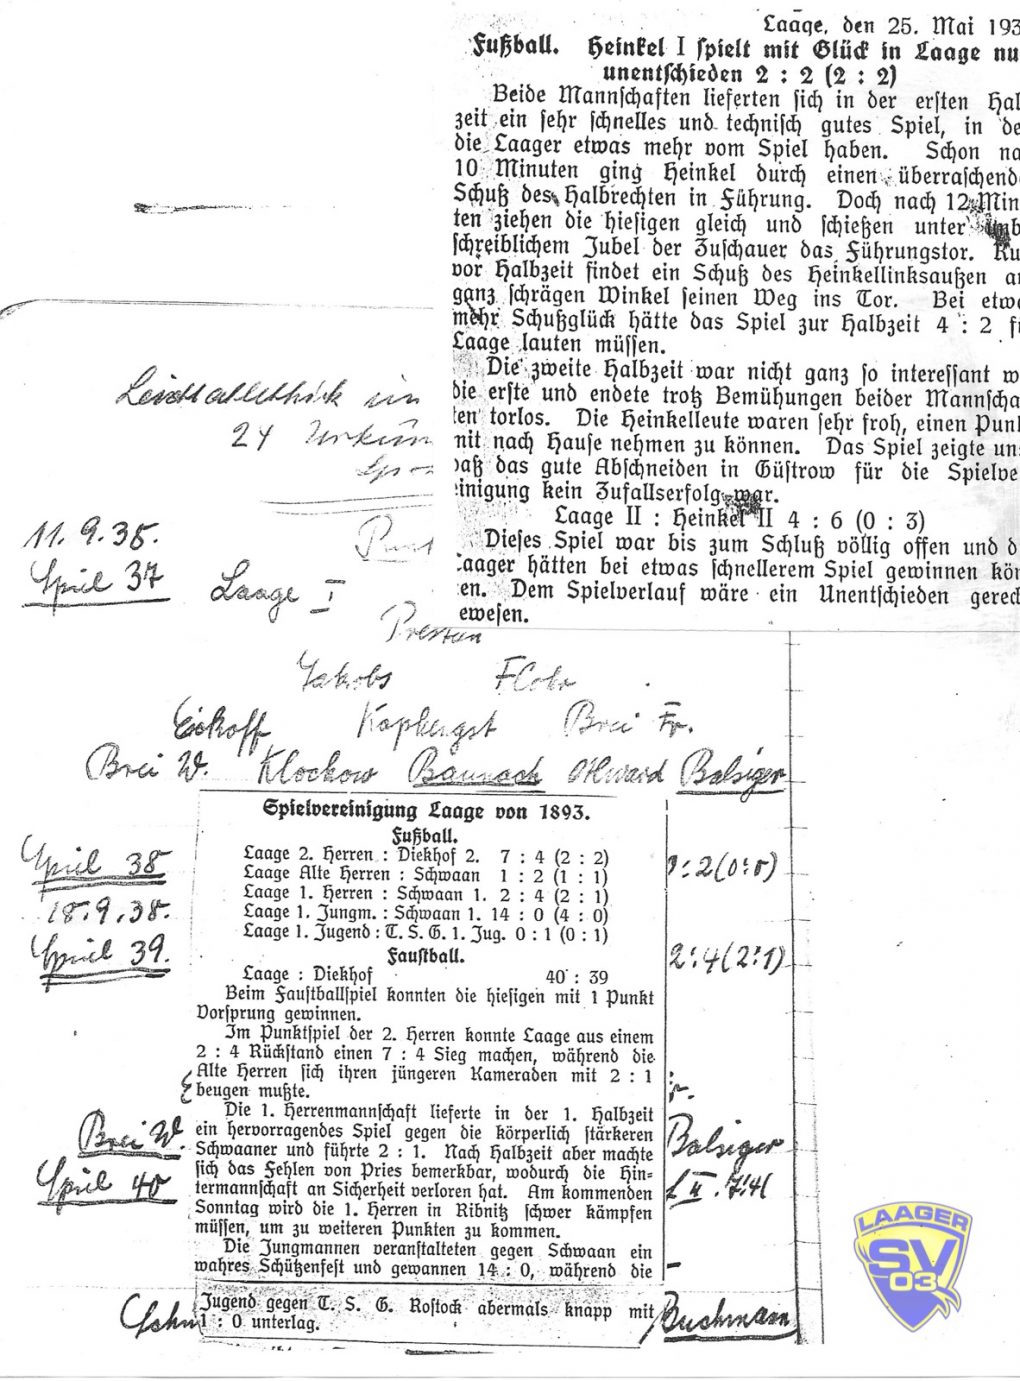 Laage, den 25. Mai 193
Fußball. Heinkel I spielt mit Glück in Laage nu
unentschieden 2 : 2 (2 : 2)
Beide Mannschaften lieferten sich in der ersten Hal
zeit ein sehr schnelles und technisch gutes Spiel, in de
die Laager etwas mehr vom Spiel haben. Schon na
10 Minuten ging Heinkel durch einen überraschende
Schuß des Halbrechten in Führung. Doch nach 12 Minu
ten ziehen die hiesigen gleich und schießen unter unb
schreiblichem Jubel der Zuschauer das Führungstor. Ku
vor Halbzeit findet ein Schuß des Heinkellinksaußen au
ganz schrägen Winkel seinen Weg ins Tor. Bei etwa
mehr Schußglück hätte das Spiel zur Halbzeit 4 : 2 fü
Laage lauten müssen.
Die zweite Halbzeit war nicht ganz so interessant w
die erste und endete trotz Bemühungen beider Mannscha
ten torlos. Die Heinkelleute waren sehr froh, einen Punk
mit nach Hause nehmen zu können. Das Spiel zeigte uns
daß das gute Abschneiden in Güstrow für die Spielve
einigung kein Zufallserfolg war.
Laage II : Heinkel II 4 : 6 (0 : 3)
Dieses Spiel war bis zum Schluß völlig offen und d
Laager hätten bei etwas schnellerem Spiel gewinnen kön
en. Dem Spielverlauf wäre ein Unentschieden gerech
ewesen.
Leichtathletik in
24
11. 9. 38.
April 37 Laage I
Jakobs
Eickoff Kaphengst Brei Fr.
Brei W. Klockow Baunach Balsiger
Spielvereinigung Laage von 1893.
Fußball.
Laage 2. Herren : Diekhof 2. 7 : 4 (2 : 2)
Laage Alte Herren : Schwaan 1 : 2 (1 : 1)
Laage 1. Herren : Schwaan 1. 2 : 4 (2 : 1)
Laage 1. Jungm. : Schwaan 1. 14 : 0 (4 : 0)
Laage 1. Jugend : T. S. G. 1. Jug. 0 : 1 (0 : 1)
Faustball.
Laage : Diekhof 40 : 39
Beim Faustballspiel konnten die hiesigen mit 1 Punkt
Vorsprung gewinnen.
Im Punktspiel der 2. Herren konnte Laage aus einem
2 : 4 Rückstand einen 7 : 4 Sieg machen, während die
Alte Herren sich ihren jüngeren Kameraden mit 2 : 1
beugen mußte.
Die 1. Herrenmannschaft lieferte in der 1. Halbzeit
ein hervorragendes Spiel gegen die körperlich stärkeren
Schwaaner und führte 2 : 1. Nach Halbzeit aber machte
sich das Fehlen von Pries bemerkbar, wodurch die Hin-
termannschaft an Sicherheit verloren hat. Am kommenden
Sonntag wird die 1. Herren in Ribnitz schwer kämpfen
müssen, um zu weiteren Punkten zu kommen.
Die Jungmannen veranstalteten gegen Schwaan ein
wahres Schützenfest und gewannen 14 : 0, während die
Jugend gegen T. S. G. Rostock abermals knapp mit
1 : 0 unterlag.
April 38
: 2 (0:0)
18. 9. 38.
April 39.
2:4 (2:1)
Brei W.
Balsiger
April 40
II. 7:4
Buchmann
LAAGER
SV
03